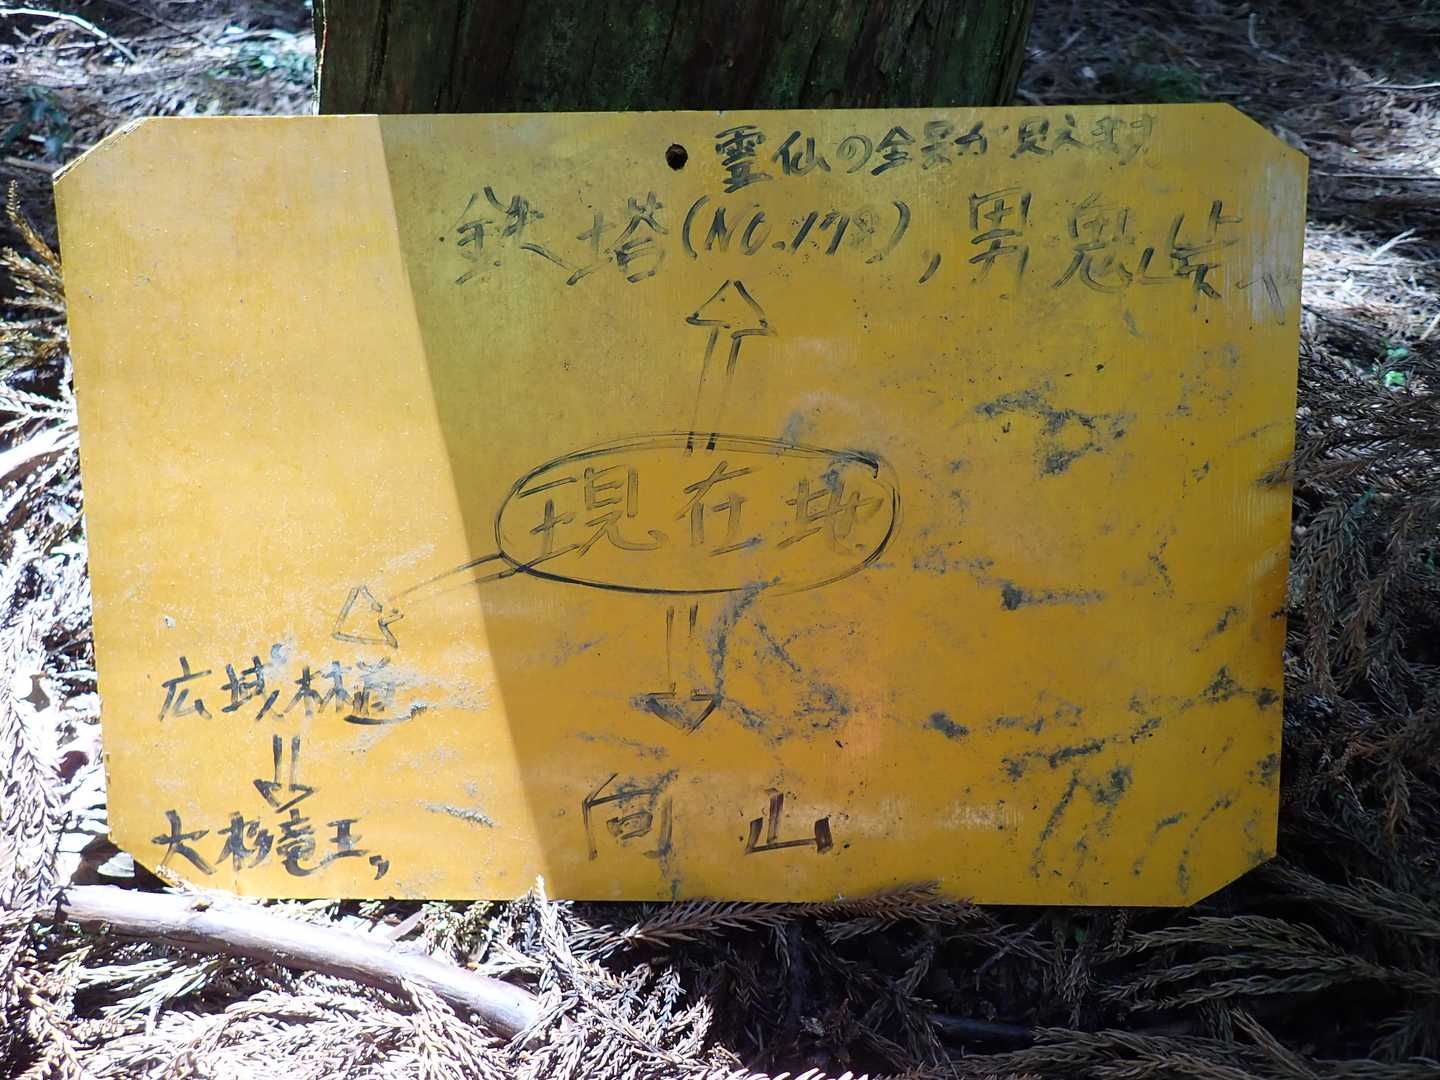 霊仙の全景が見えます
鉄塔(NO.178),男鬼峠へ
現在地
広域林道
大杉竜王,
向山